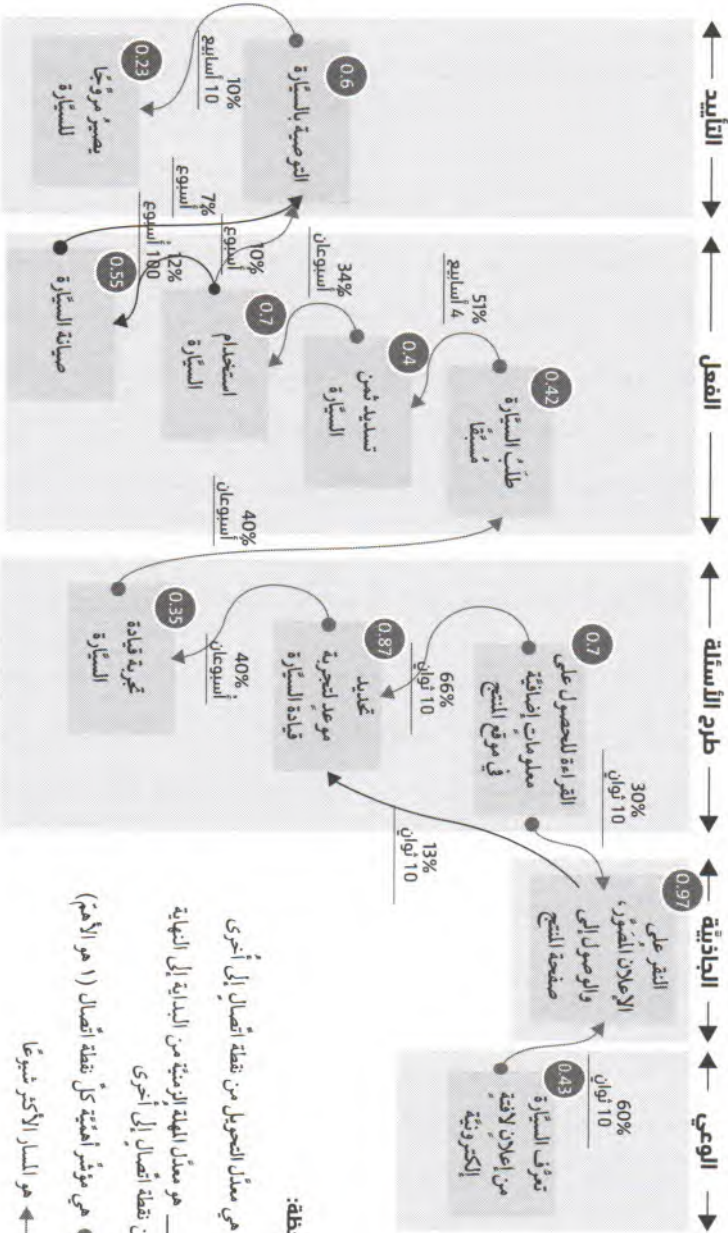 الوعي
الجاذبيَّة
طرح الأسئلة
الفعل
التأييد
تعرُّف السيَّارة
من إعلانِ لافتةٍ
إلكترونيَّة
0.43
60%
10 ثوانٍ
النقر على
الإعلان المُصَوَّر،
والوصول إلى
صفحة المنتج
0.97
30%
10 ثوانٍ
13%
10 ثوانٍ
القراءة للحصول على
معلوماتٍ إضافيَّة
في موقع المنتج
0.7
66%
10 ثوانٍ
تحديد
موعدٍ لتجربة
قيادة السيَّارة
0.87
40%
أسبوعان
تجربة قيادة
السيَّارة
0.35
40%
أسبوعان
طلَبُ السيَّارة
مُسبَّقًا
0.42
51%
4 أسابيع
تسديد ثمن
السيَّارة
0.4
34%
أسبوعان
استخدام
السيَّارة
0.7
10%
أسبوع
12%
100 أسبوع
صيانة السيَّارة
0.55
7%
أسبوع
التوصية بالسيَّارة
0.6
10%
10 أسابيع
يصيرُ مروِّجًا
للسيَّارة
0.23
هي معدَّل التحويل من نقطة اتِّصالٍ إلى أُخرى
هو معدَّل المهلة الزمنيَّة من البداية إلى النهاية
نقطة اتِّصالٍ إلى أُخرى
هي مؤشِّر أهمِّيَّة كلِّ نقطة اتِّصال (١ هو الأهمّ)
هو المسار الأكثر شيوعًا